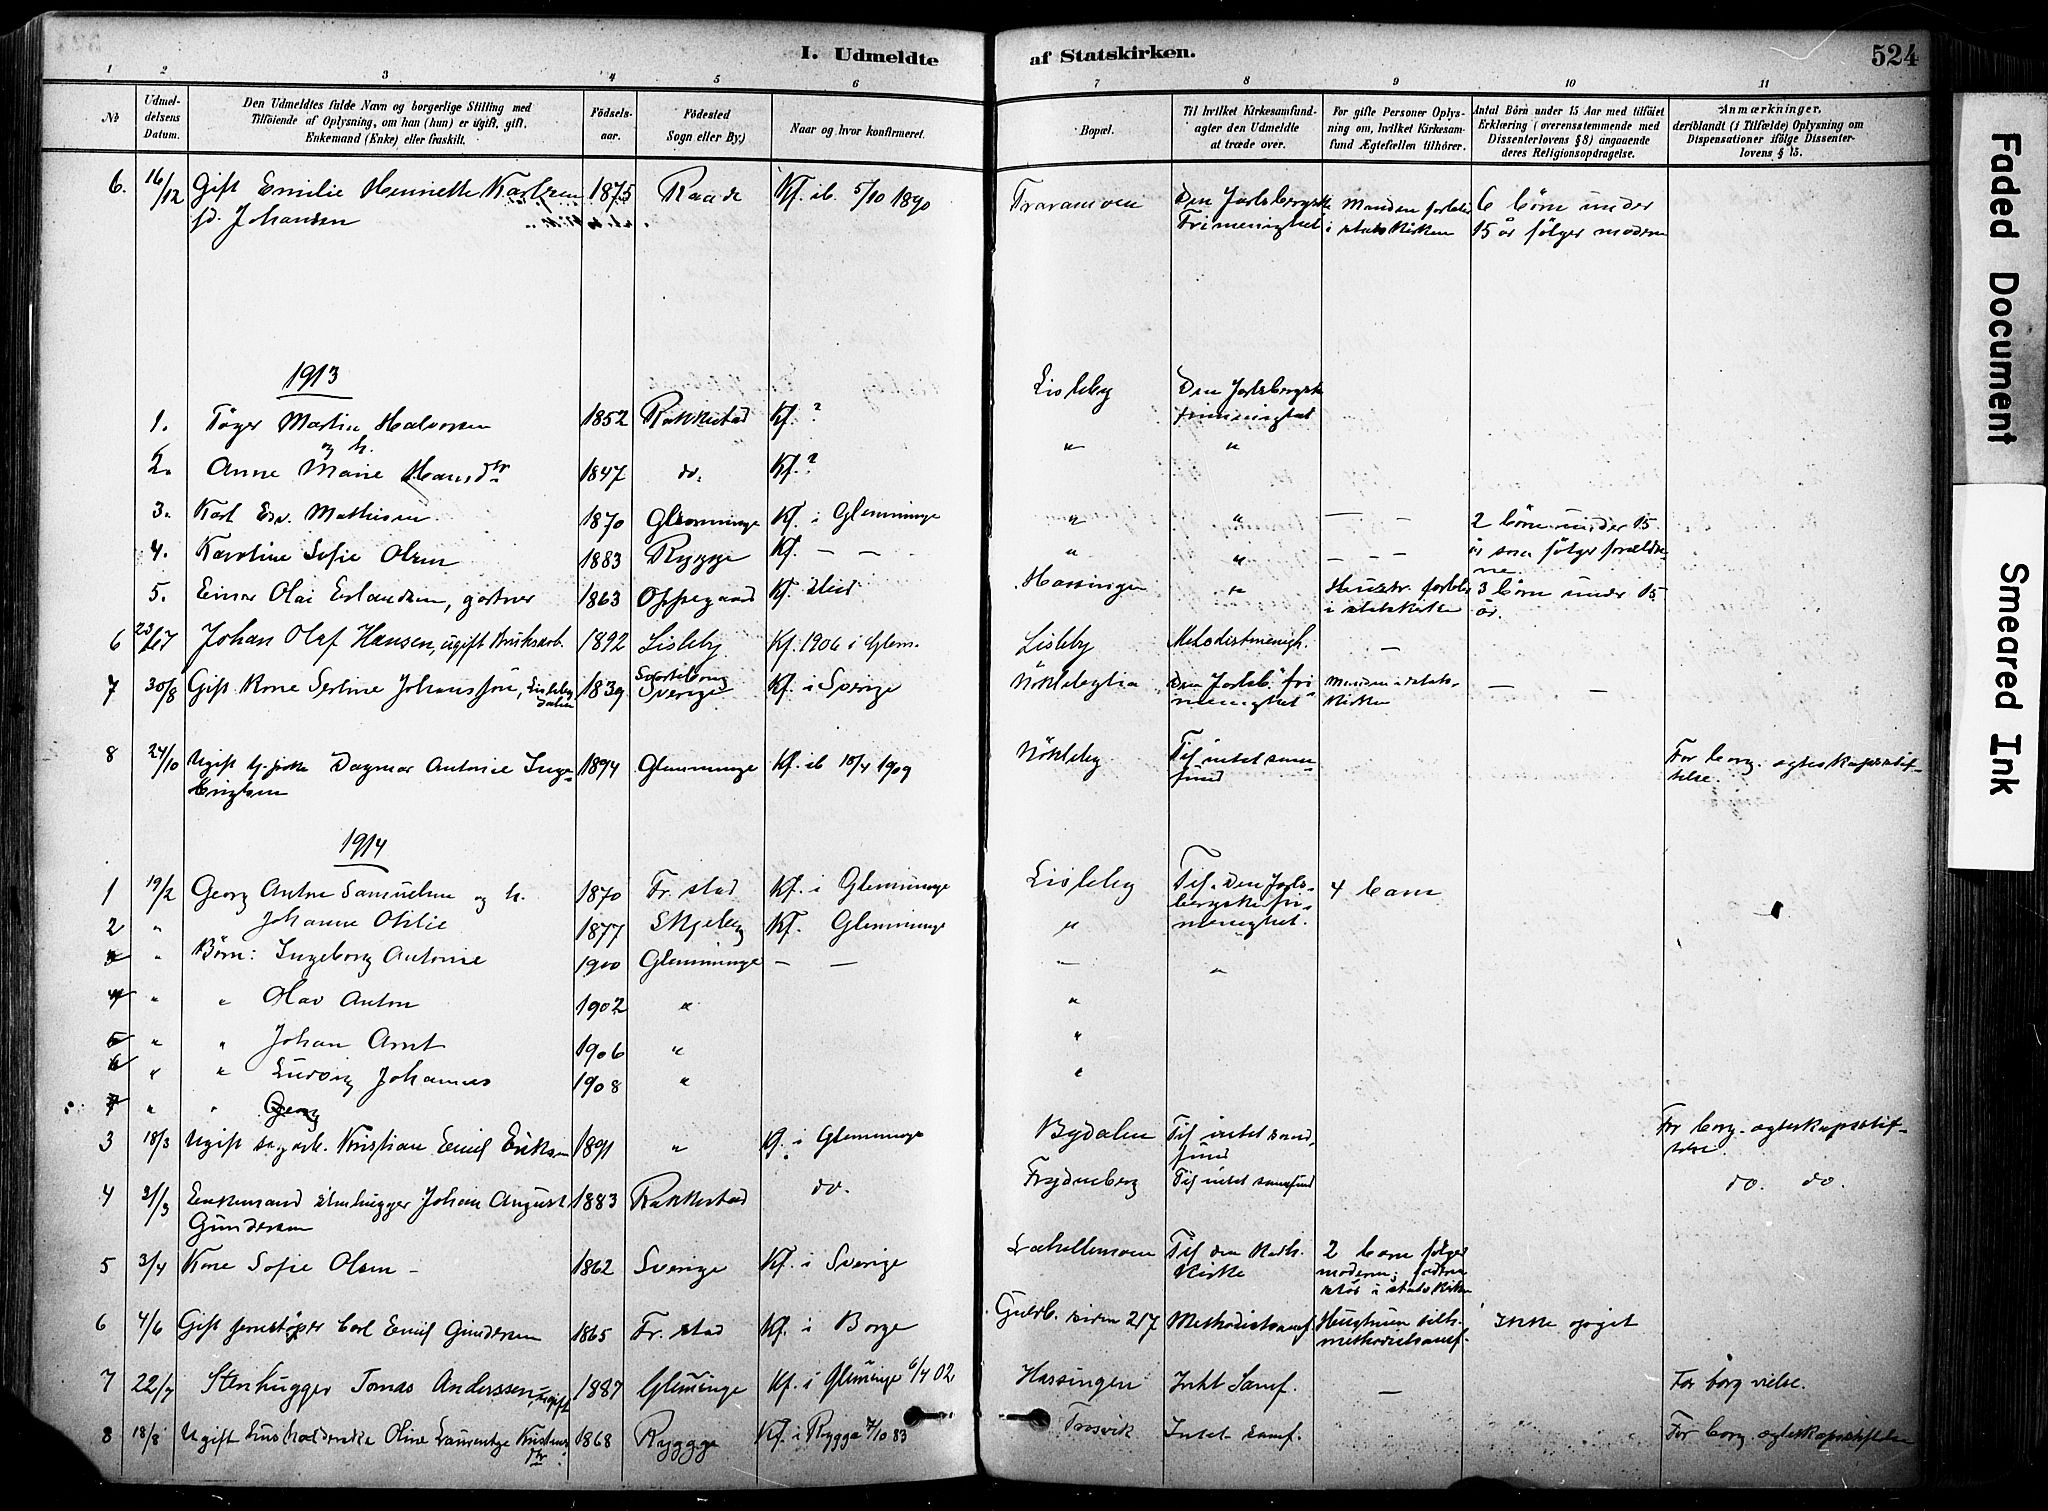 I. Udmeldte af Statskirken. 524
1 2 3 4 5 6 7 8 9 10 11
No Udmeldelsens Datum. Den Udmeldtes fulde Navn og borgerlige Stilling med Tilföiende af Oplysning, om han (hun) er ugift, gift, Enkemand (Enke) eller fraskilt. Födselsaar. Födested Sogn eller By.) Naar og hvor konfirmeret. Bopæl. Til hvilket Kirkesamfund agter den Udmeldte at træde over. For gifte Personer Oplysning om, hvilket Kirkesamfund Ægtefællen tilhörer. Antal Börn under 15 Aar med tilföiet Erklæring (overensstemmende med Dissenterlovens § 8) angaaende deres Religionsopdragelse. Anmærkninger. deriblandt (i Tilfælde) Oplysning om Dispensationer ifölge Dissenterlovens § 15.
6. 16/12 Gift Emilie Henriette Karlsen 1875 Raade Kf. ib 5/10 1890 Travamoen Den Jarlsbergske Manden forbliver 6 börn under
fd. Johansen Frimenighet i statskirken 15 år fölger moderen
1913
1. Töger Martin Halvorsen 1852 Rakkestad Kf. ? Lisleby Den Jarlsbergske
og h. frimenighet
2. Anne Marie Hansdtr 1847 do. Kf. ? " "
3. Karl Edv. Mathisen 1870 Glemminge Kf. i Glemminge " " — — 2 börn under 15
4. Karoline Sofie Olsen 1883 Rygge Kf. — — " " — — år som fölger forældre-
ne.
5. Einar Olai Erlandsen, gartner 1863 Oppegaard Kf. Hassingen " Hustr. forbliver 3 börn under 15
i statskirken år.
6 23/ Johan Olaf Hansen, ugift bruksarb. 1892 Lisleby Kf. 1906 i Glem. Lisleby Metodistmenigh. —
7 30/8 Gift Kone Serine Johansson, Lisleby 1839 Sverige Kf. i Sverige Nöklebylia Den Jarlsb. "fri- Manden i stats- — —
dalen menighet" kirken
8 24/10 Ugift tj.pike Dagmar Antonie Inge- 1894 Glemminge Kf. ib 18/4 1909 Nökleby Til intet sam- For borg. ægteskapsstif-
brigtsen fund telse.
1914
1 19/2 Georg Anton Samuelsen og h. 1870 Fr.stad Kf. i Glemminge Lisleby Til "Den Jarls- 4 barn
bergske fri-
2 " Johanne Otilie 1877 Skjeberg Kf. Glemminge " menighet.
3 " Börn: Ingeborg Antonie 1900 Glemminge — — — "
4 " " Olav Anton 1902 " "
5 " " Johan Arnt 1906 " "
6 " " Ludvig Johannes 1908 " "
7 " " Georg
3 18/3 Ugift sagarb. Kristian Emil Eriksen 1891 " Kf. i Glemminge Bydalen Til intet sam- For borg. ægteskapsstif-
fund telse.
4 21/3 Enkemand stenhugger Johan August 1883 Rakkestad do. Frydenberg Til intet samfund do. do.
Gundersen
5 3/4 Kone Sofie Olsen — 1862 Sverige Kf. i Sverige Til den Kath. 2 barn fölger
Kirke moderen; faderen
står i statskirken
6 4/6 Gift jernstöper Carl Emil Gundersen 1865 Fr.stad Kf. i Borge Methodistsamf. Hustruen tilh. Ikke opgit
methodistsamf.
7 22/7 Stenhugger Tomas Anderssen, ugift 1887 Gleminge Kf. i Gleminge 6/4 02 Hassingen Intet Samf. — For borg vielse.
8 18/8 Ugift husholderske Oline Laurentze Kristens 1868 Rygge Kf. i Rygge 7/10 83 Trosvik Intet samf. For borg. ægteskapsstiftelse
dtr
Faded Document
Smeared Ink